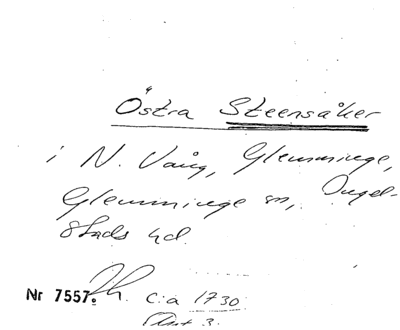 Östra Steensåker
i N. Vång, Glemminge,
Glemminge sn, Ingel-
stads hd.
Nr 7557. c:a 1730